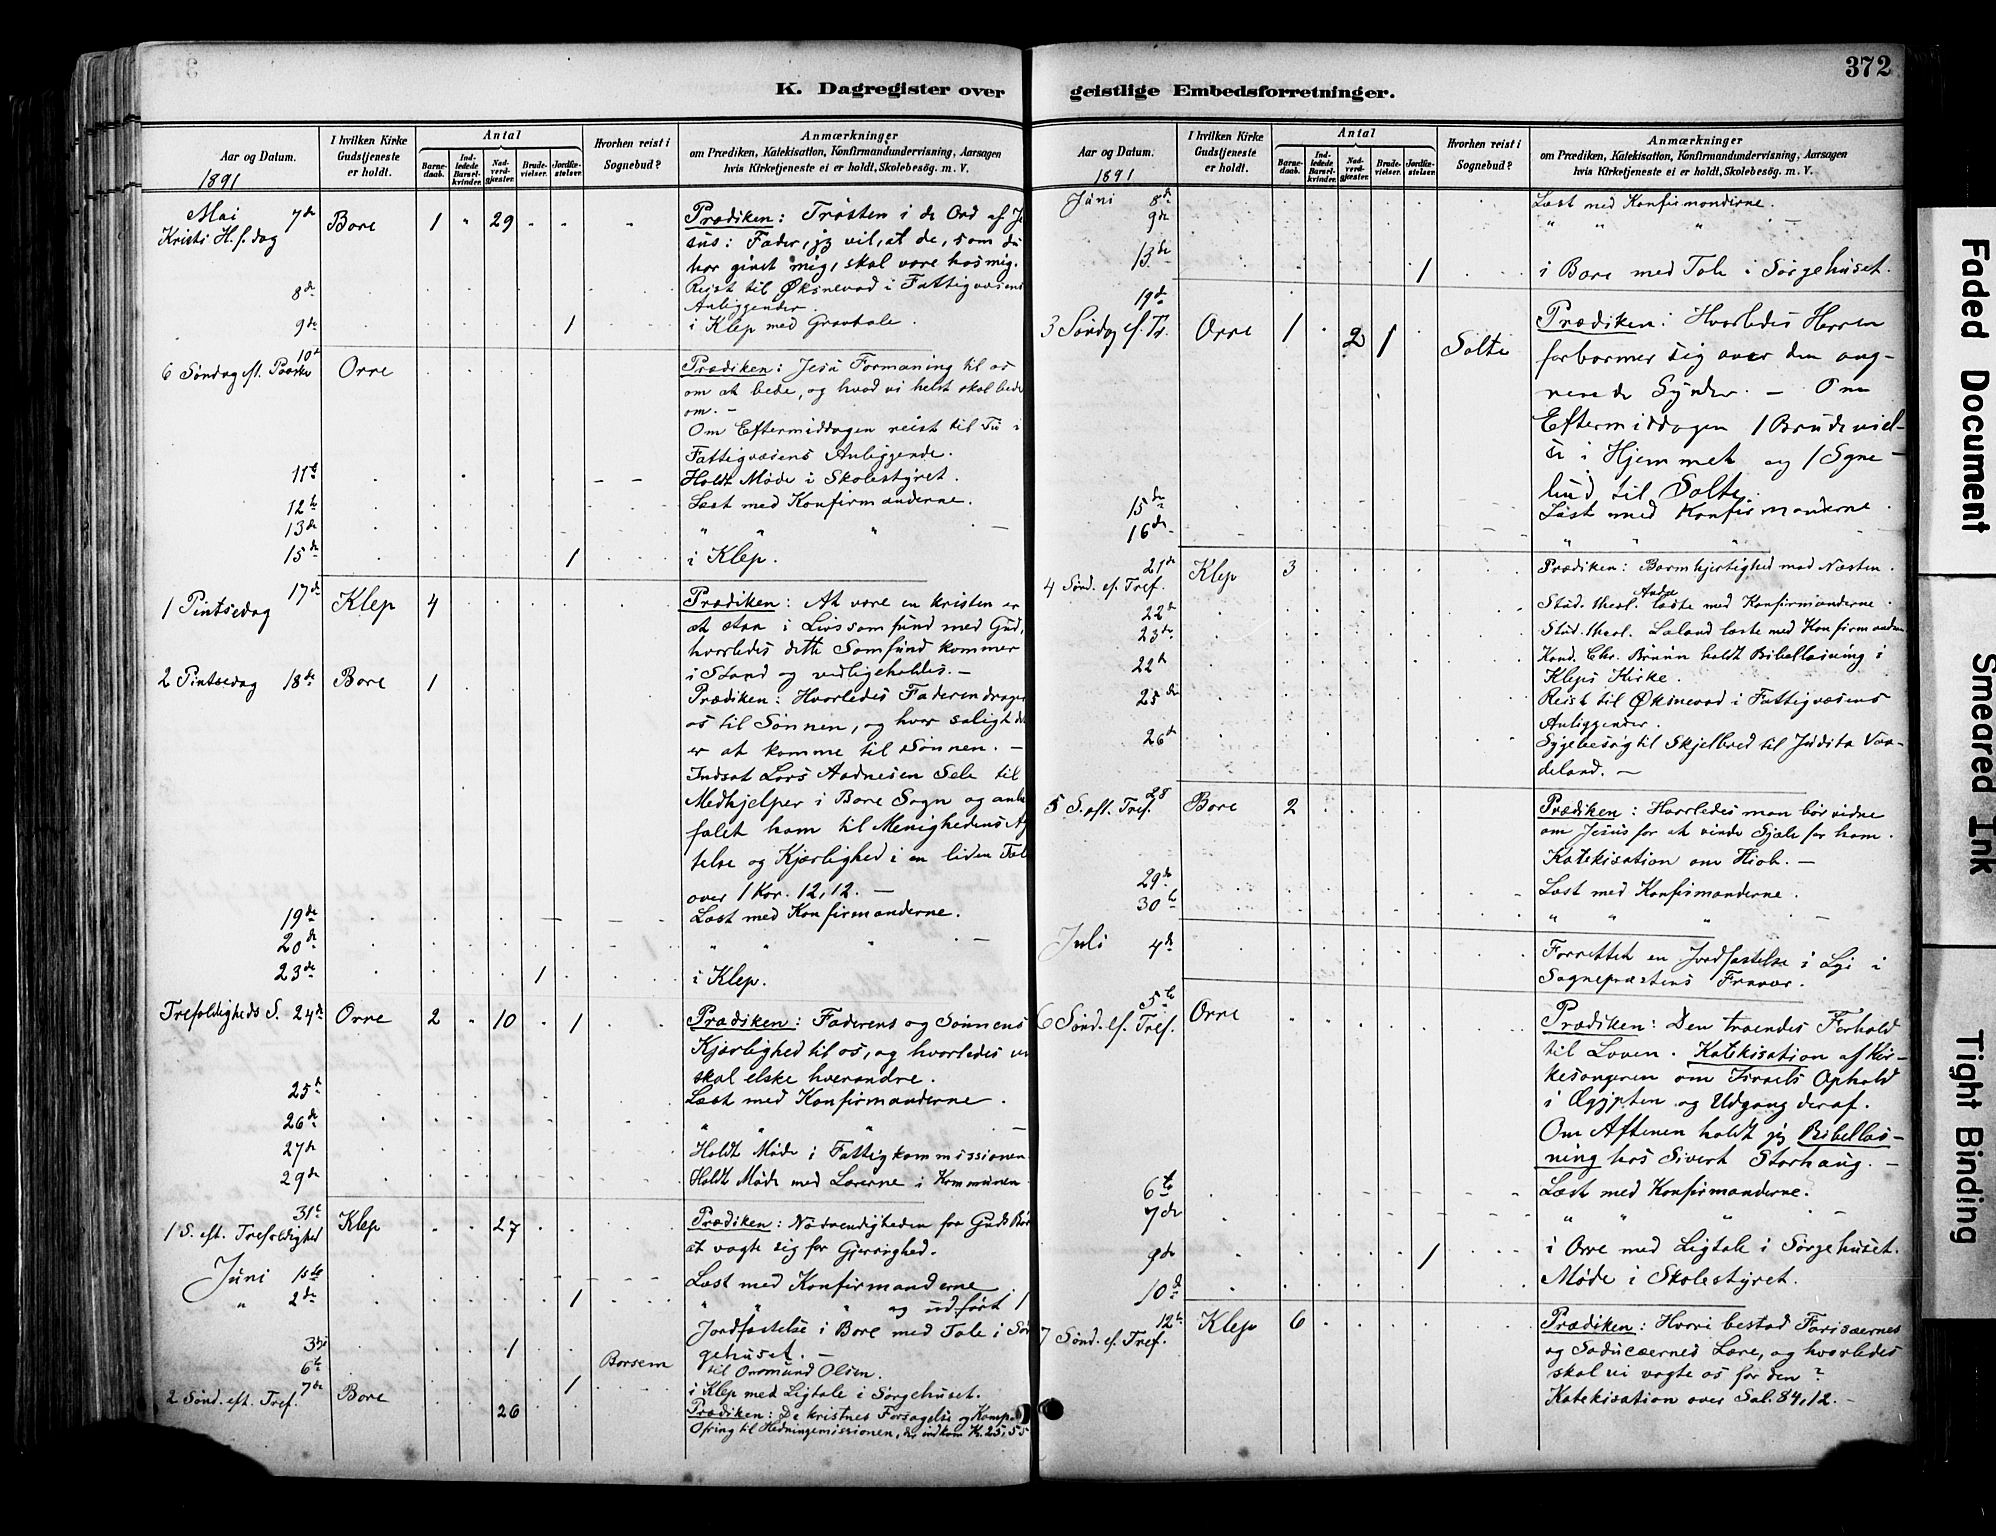 372
K. Dagregister over geistlige Embedsforretninger.
Aar og Datum.
1891
I hvilken Kirke Gudstjeneste er holdt.
Antal
Barnedaab.
Indledede Barselkvinder.
Nadverdgjæster.
Brudevielser.
Jordfæstelser.
Hvorhen reist i Sognebud?
Anmærkninger
om Prædiken, Katekisation, Konfirmandundervisning, Aarsagen
hvis Kirketjeneste ei er holdt, Skolebesøg. m. V.
Mai 7de Bore 1 " 29 Prædiken: Trøsten i de Ord af Je
Kristi H. f. dag sus: Fader, jeg vil, at de, som du
har givet mig, skal være hos mig.
8de Reist til Øksnevad i Fattigvæsens
Anliggender.
9de 1 i Klep med Gravtale.
10de
6 Søndag eft. Paaske Orre Prædiken: Jesu Formaning til os
om at bede, og hvad vi helst skal bede
om. —
Om Eftermiddagen reist til Tu i
Fattigvæsens Anliggende.
11te Holdt Møde i Skolestyret.
12te Læst med Konfirmanderne.
13de " " "
15de 1 i Klep.
17de
1 Pintsedag Klep 4 Prædiken: At være en kristen er
at staa i Livssamfund med Gud,
hvorledes dette Samfund kommer
i Stand og vedligeholdes. —
2 Pintsedag 18de Bore 1 Prædiken: Hvorledes Faderen drager
os til Sønnen, og hvor saligt det
er at komme til Sønnen. —
Indsat Lars Aadnesen Sele til
Medhjelper i Bore Sogn og anbe
falet ham til Menighedens Ag
telse og Kjærlighed i en liden Tale
over 1 Kor. 12, 12. —
19de Læst med Konfirmanderne.
20de " " "
23de 1 i Klep.
Trefoldigheds S. 24de Orre 2 " 10 1 Prædiken: Faderens og Sønnens
Kjærlighed til os, og hvorledes vi
skal elske hverandre.
25te Læst med Konfirmanderne.
26de " "
27de Holdt Møde i Fattigkommissionen
29de Holdt Møde med Lærerne i Kommunen
31te
1 S. eft. Trefoldighed Klep 27 Prædiken: Nødvendigheden for Guds Bør
at vogte sig for Gjerrighed.
Juni 1ste Læst med Konfirmanderne
" 2de 1 " " " og udført 1
Jordfæstelse i Bore med Tale i Sør
gehuset. —
3die 1 Borsem til Omund Olsen.
6te 1 i Klep med Ligtale i Sørgehuset.
7de
2 Sønd. eft. Tref. Bore 26 Prædiken: De kristnes Forsagelse og Kamp.
Ofring til Hedningemissionen, der indkom Kr. 25,55
Aar og Datum.
1891
I hvilken Kirke Gudstjeneste er holdt.
Antal
Barnedaab.
Indledede Barselkvinder.
Nadverdgjæster.
Brudevielser.
Jordfæstelser.
Hvorhen reist i Sognebud?
Anmærkninger
om Prædiken, Katekisation, Konfirmandundervisning, Aarsagen
hvis Kirketjeneste ei er holdt, Skolebesøg. m. V.
Juni 8de Læst med Konfirmanderne.
9de " " "
13de 1 i Bore med Tale i Sørgehuset.
3 Søndag ef. Tr. Orre 1 2 1 Salte Prædiken: Hvorledes Herren
forbarmer sig over den ang-
rende Synder. — Om
Eftermiddagen 1 Brudeviel-
se i Hjemmet og 1 Sogne-
bud til Salte.
15de Læst med Konfirmanderne.
16de " " "
21de
4 Sønd. ef. Tref. Klep 3 Prædiken: Barmhjertighed mod Næsten.
22de Stud. theol. læste med Konfirmanderne.
23de Stud. theol. Laland læste med Konfirmanderne
22de Kand. Chr. Bruun holdt Bibellæsning i
Kleps Kirke.
25de Reist til Øksnevad i Fattigvæsens
Anliggender.
26de Sygebesøg til Skjelbred til Judita Vaa-
deland. —
28
5 S. eft. Tref. Bore 2 Prædiken: Hvorledes man bør vidne
om Jesus for at vinde Sjæle for ham.
Katekisation om Hiob. —
29de Læst med Konfirmanderne.
30te " " "
Juli 4de Forrettet en Jordfæstelse i Lye i
Sognepræstens Fravær.
5te
6 Sønd. ef. Tref. Orre Prædiken: Den troendes Forhold
til Loven. Katekisation af Kir-
kesangeren om Israels Ophold
i Ægypten og Udgang deraf.
Om Aftenen holdt jeg Bibellæs-
ning hos Sivert Storhaug. —
6te Læst med Konfirmanderne.
7de " " "
9de 1 i Orre med Ligtale i Sørgehuset.
10de Møde i Skolestyret.
12te
7 Sønd. ef. Tref. Klep 6 Prædiken: Hvori bestod Farisæernes
og Saducæernes Lære, og hvorledes
skal vi vogte os for den?
Katekisation over Sal. 84, 12. —
Faded Document
Smeared Ink
Tight Binding